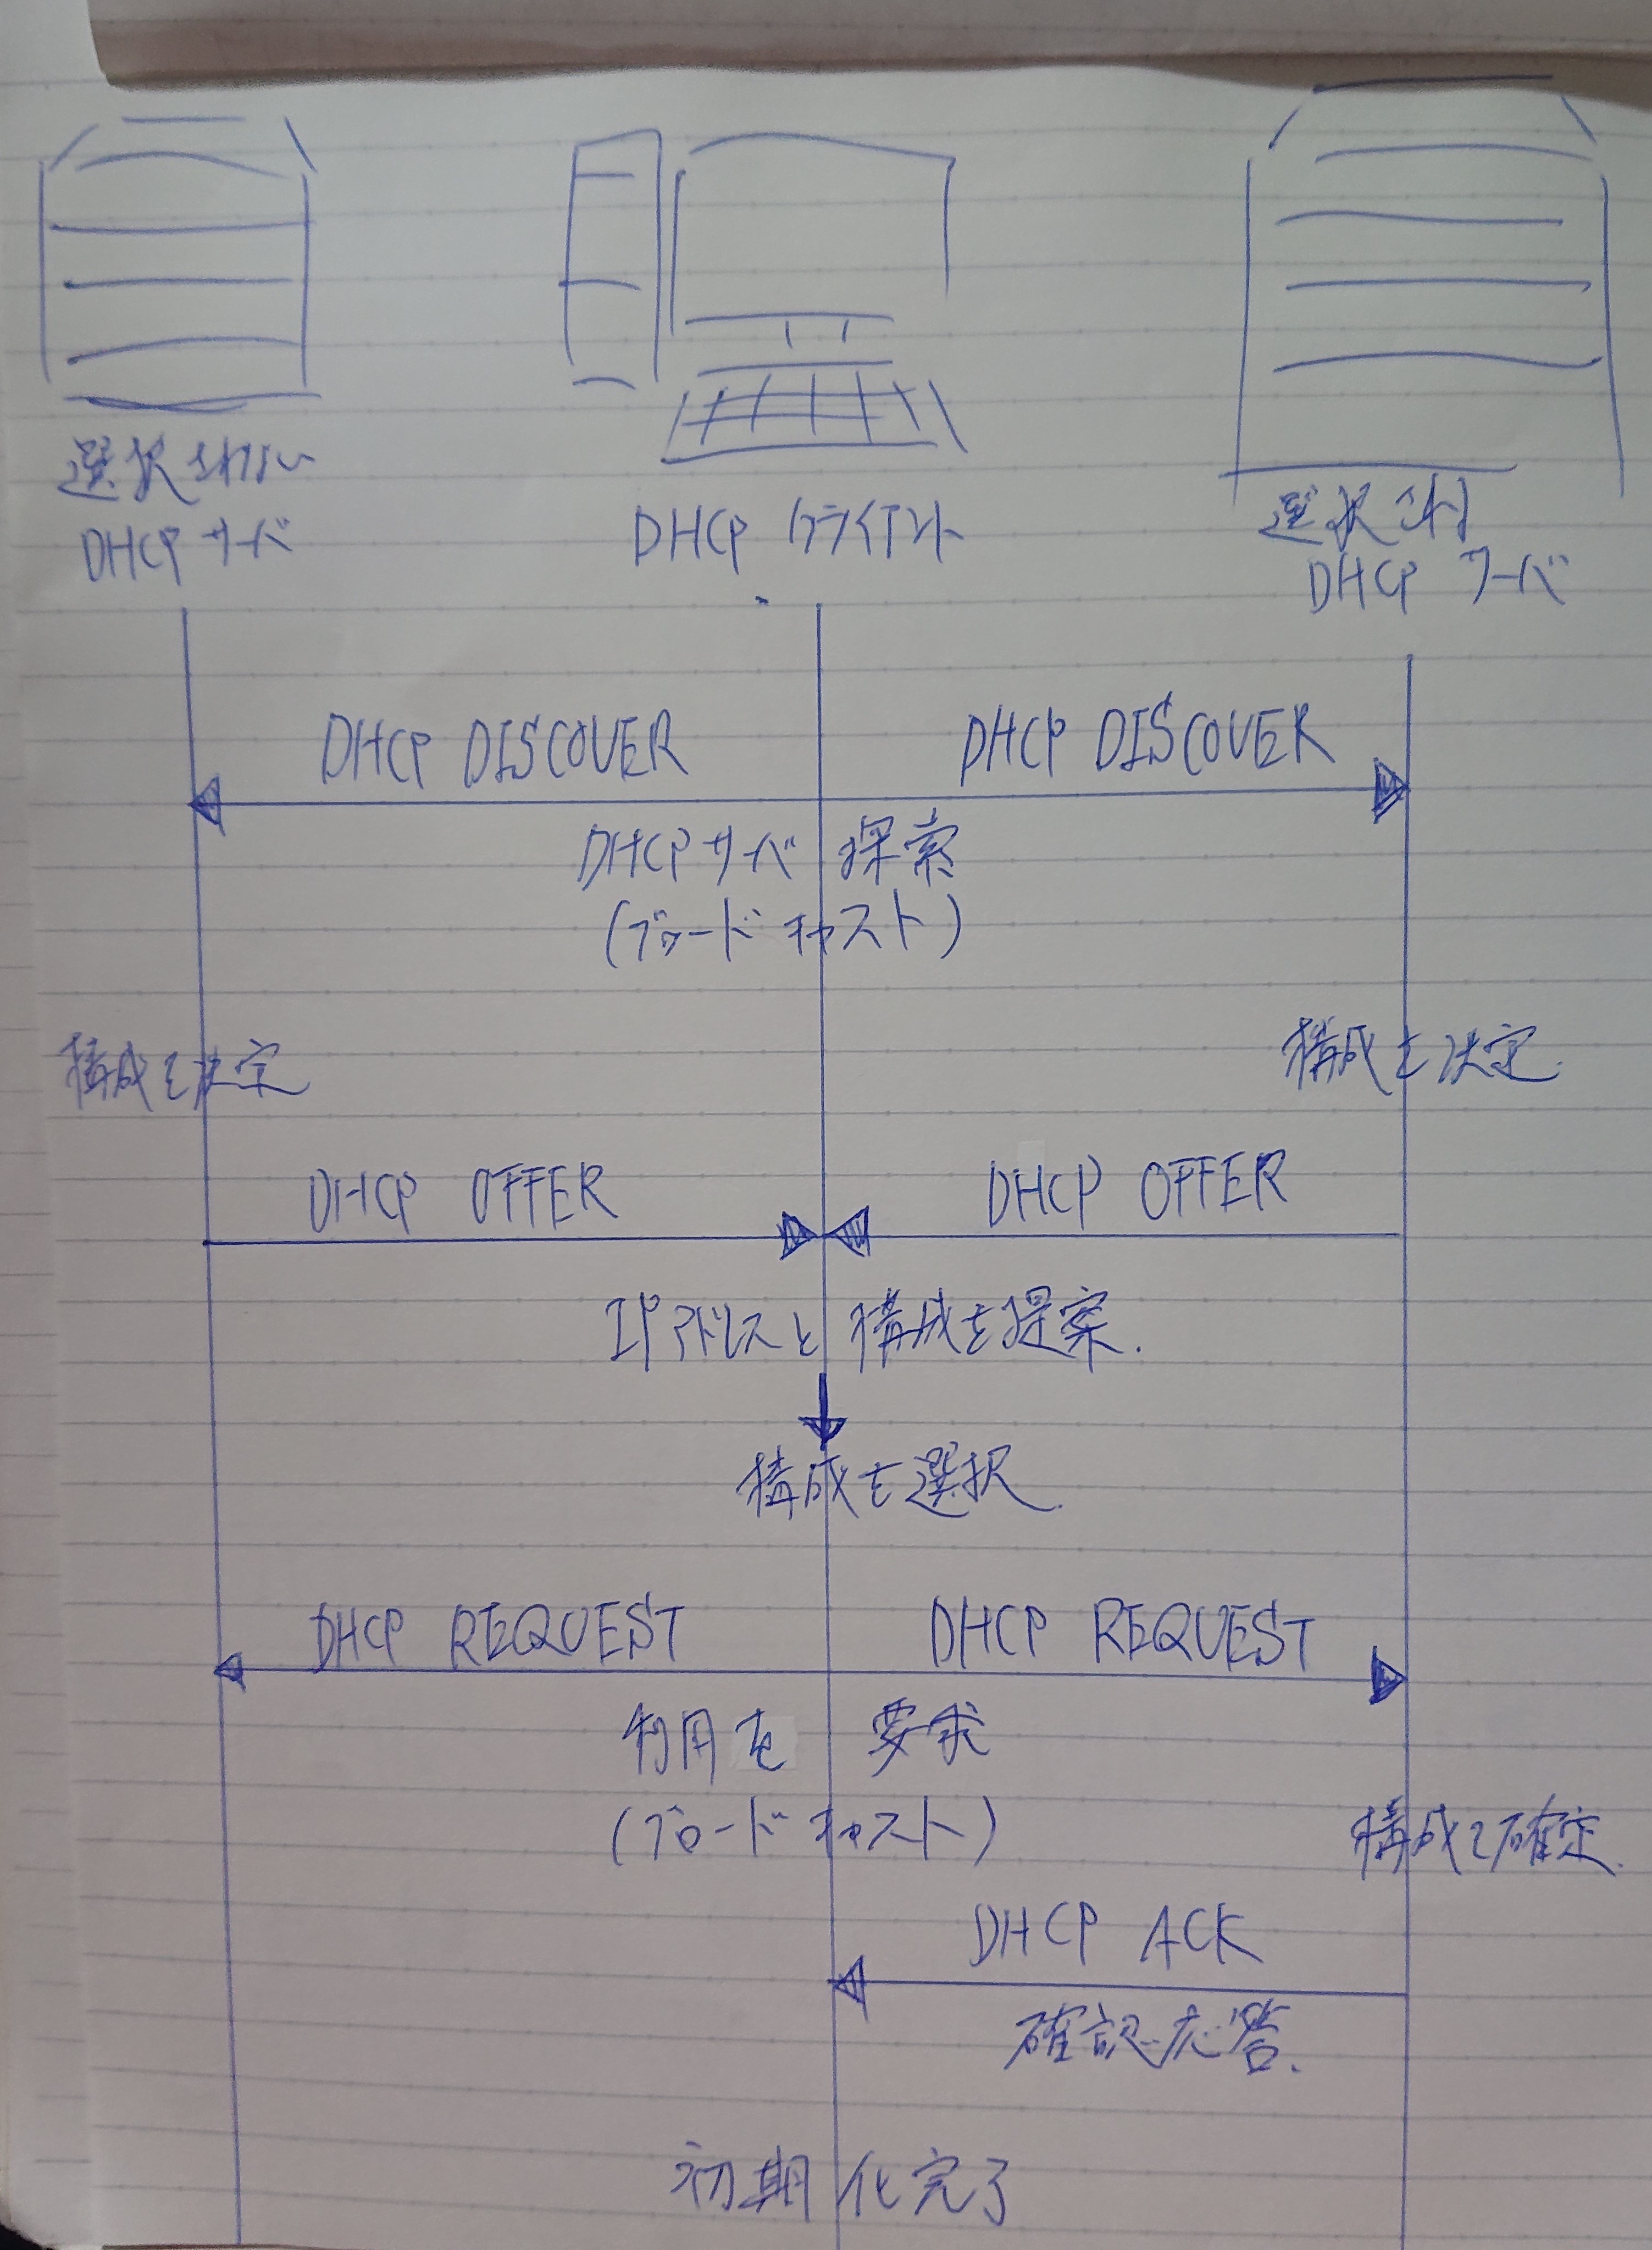 選択されない
DHCP サーバ
DHCP クライアント
選択され
DHCP サーバ
DHCP DISCOVER
DHCP DISCOVER
DHCPサーバ 探索
(ブロードキャスト)
構成を決定
構成を決定.
DHCP OFFER
DHCP OFFER
IPアドレスと構成を提案.
構成を選択.
DHCP REQUEST
DHCP REQUEST
利用を 要求
(ブロードキャスト)
構成を確定.
DHCP ACK
確認応答.
初期化完了